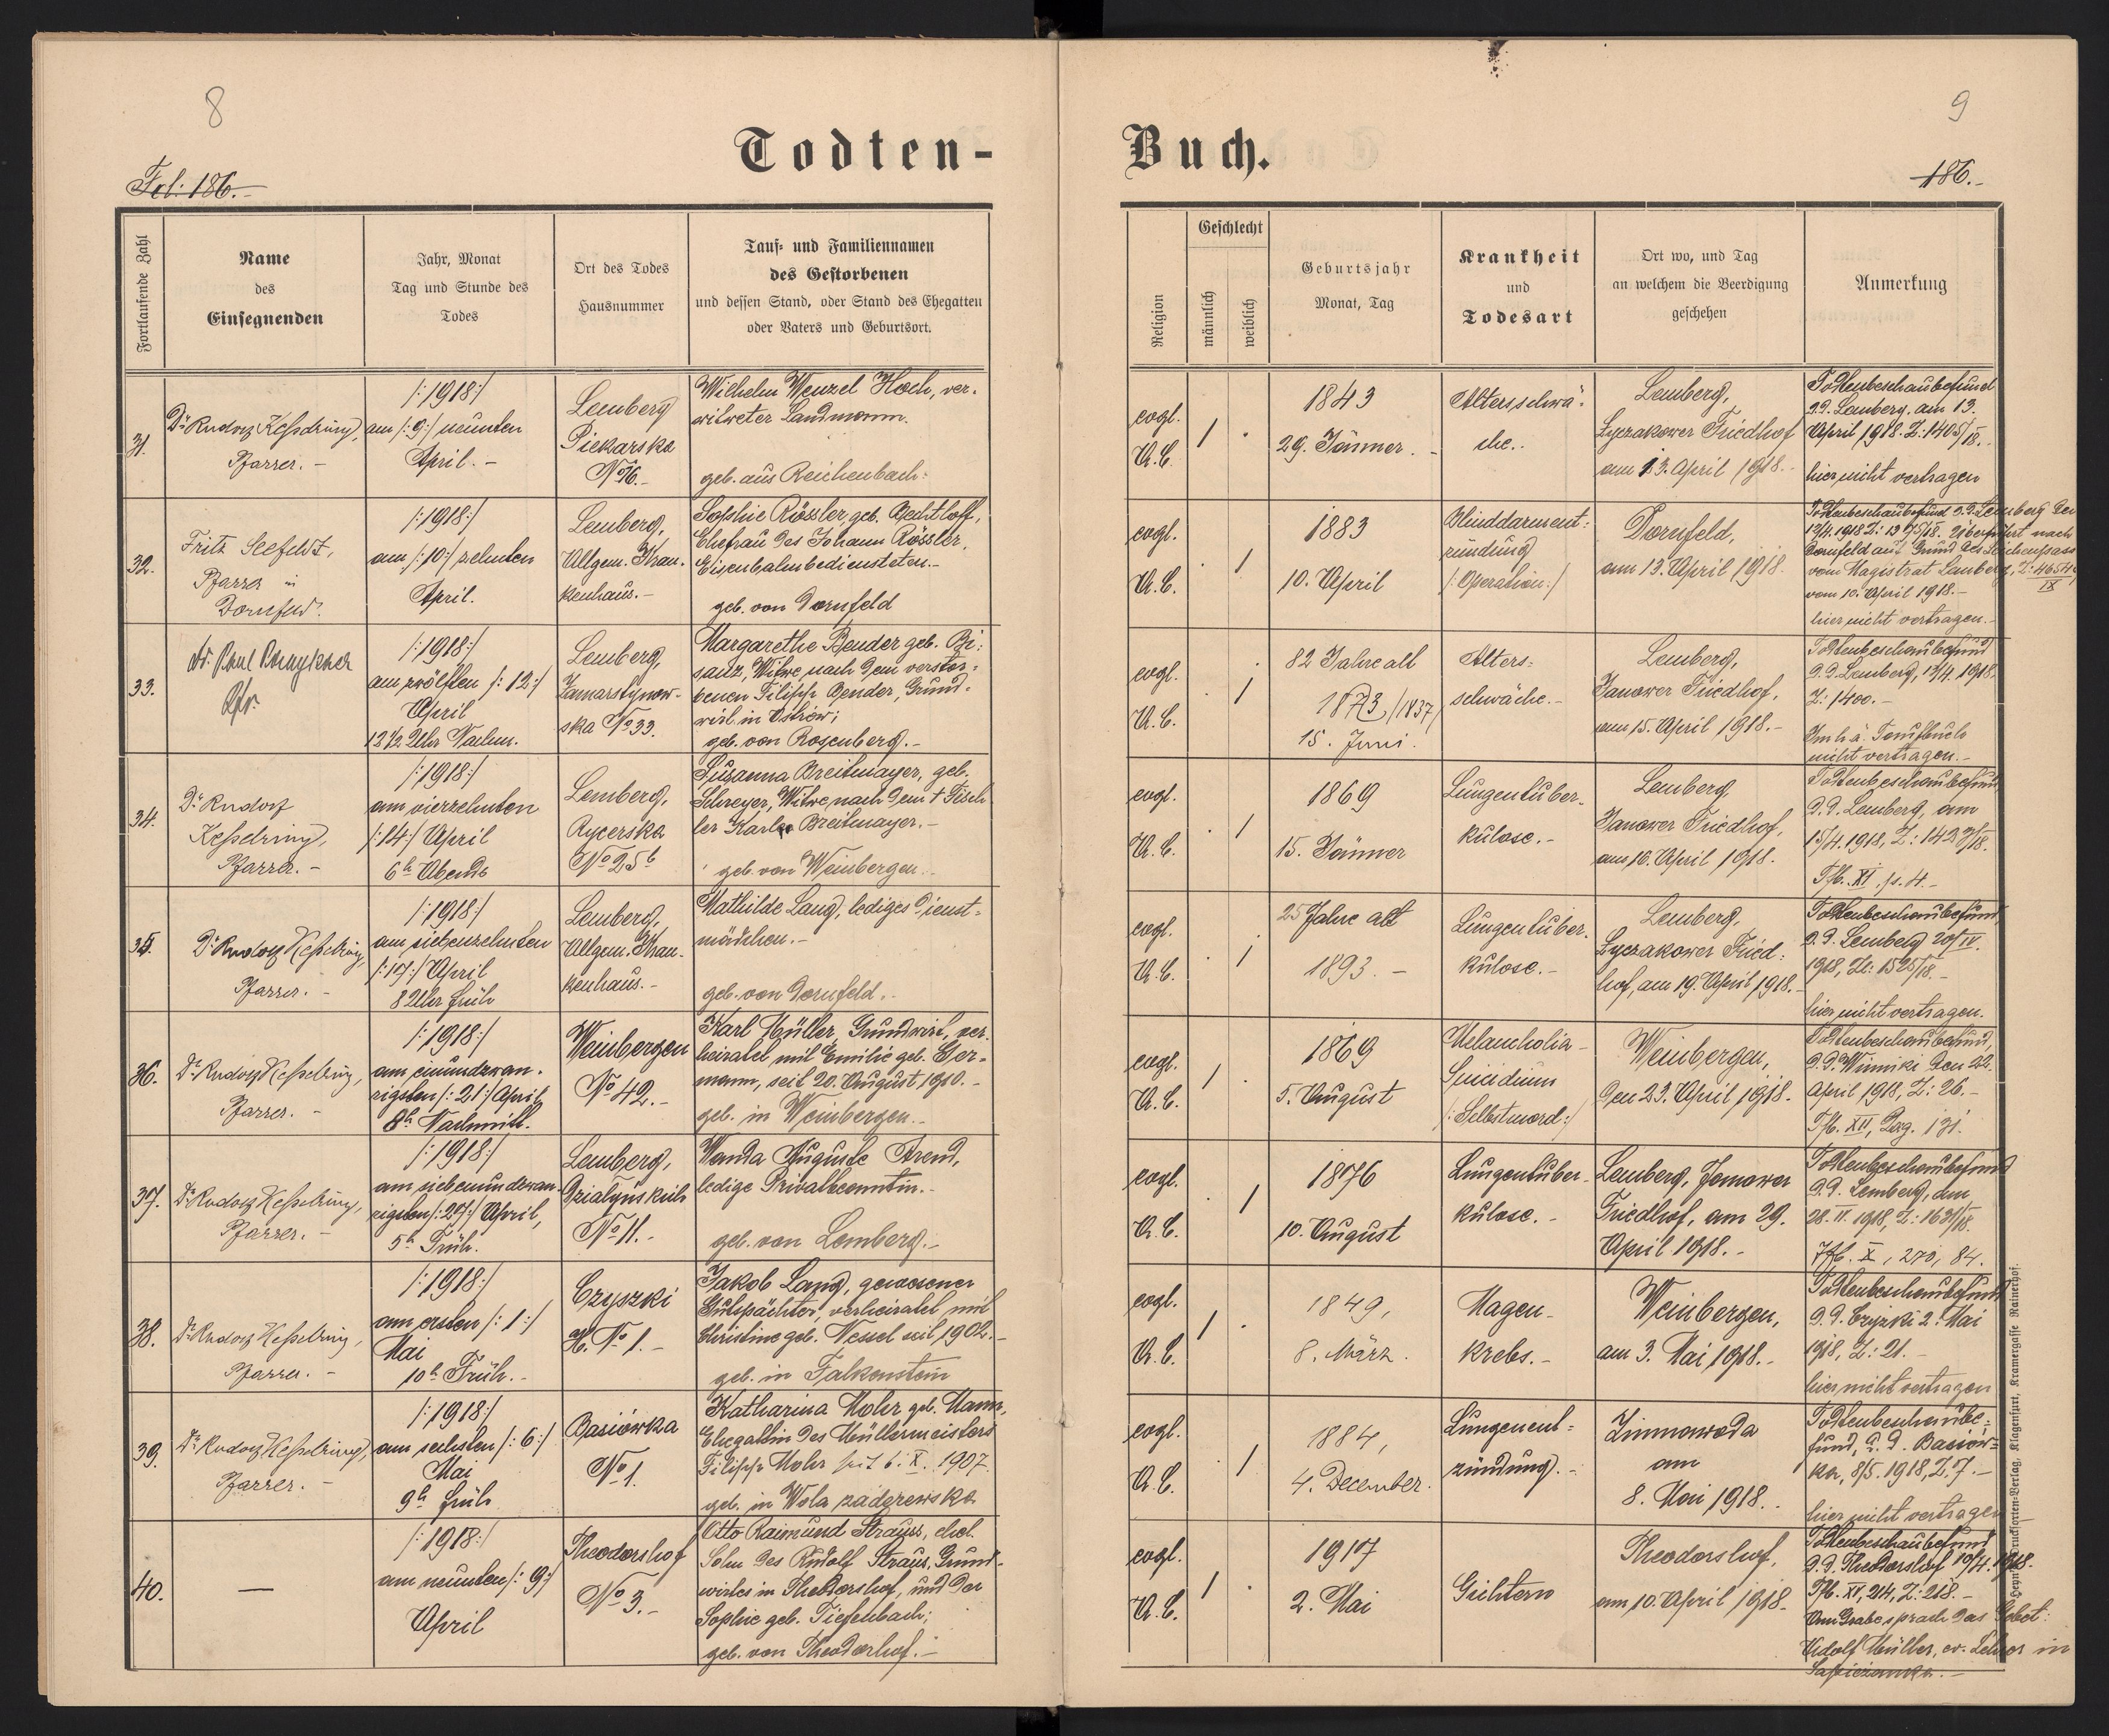 8
9
Todten-
Buch.
Fol. 186.-
186.-
Fortlaufende Zahl
Name
des
Einsegnenden
Jahr, Monat
Tag und Stunde des
Todes
Ort des Todes
Hausnummer
Tauf- und Familiennamen
des Gestorbenen
und dessen Stand, oder Stand des Ehegatten
oder Vaters und Geburtsort.
Religion
Geschlecht
männlich
weiblich
Geburtsjahr
Monat, Tag
Krankheit
und
Todesart
Ort wo, und Tag
an welchem die Beerdigung
geschehen
Anmerkung
31.
Dr Rudolf Kesselring,
Pfarrer.-
/:1918:/
am /:9:/ neunten
April.-
Lemberg
Piekarska
No 16.-
Wilhelm Wenzel Hoch, ver-
witweter Landmann.
geb. aus Reichenbach.
evgl.
A.C.
1 .
1843
29. Jänner.-
Altersschwä-
che..
Lemberg,
Lyczakower Friedhof
am 13. April 1918.-
Todtenbeschaubefund
d.d. Lemberg, am 13.
April 1918. Z: 1405/18.-
hier nicht vertragen
32.
Fritz Seefeldt,
Pfarrer in
Dornfeld.
/:1918:/
am /:10:/ zehnten
April.
Lemberg,
Allgem. Kran-
kenhaus.-
Sophie Rössler geb. Bechtloff,
Ehefrau des Johann Rössler,
Eisenbahnbediensteten.-
geb. von Dornfeld
evgl.
A.C.
. 1
1883
10. April
Blinddarment-
zündung
/:Operation:/
Dornfeld,
am 13. April 1918.
Todtenbeschaubefund d.d. Lemberg den
12/4. 1918 Z: 1375/18. Überführt nach
Dornfeld auf Grund des Leichenpass
vom Magistrat Lemberg, Z: 4654/IX
vom 10. April 1918.-
hier nicht vertragen.-
33.
Dr. Paul
Pfr.
/:1918:/
am zwölften /:12:/
April
12 1/2 Uhr Nachm.
Lemberg,
Zamarstynow-
ska No 33.
Margarethe Bender geb. Bi-
sanz, Witwe nach dem verstor-
benen Filipp Bender, Grund-
wirt in Ostrów;
geb. von Rosenberg.-
evgl.
A.C.
. 1
82 Jahre alt
1873 /1837/
15. Juni.
Alters-
schwäche.-
Lemberg,
Janower Friedhof,
am 15. April 1918.-
Todtenbeschaubefund
d.d. Lemberg, 13/4. 1918.
Z: 1400.-
Im h.ä. Taufbuch
nicht vertragen.-
34.
Dr Rudolf
Kesselring,
Pfarrer.-
/:1918:/
am vierzehnten
/:14:/ April
6h Abends
Lemberg,
Rycerska
No 25b
Susanna Breitmayer, geb.
Schreyer, Witwe nach dem † Tisch-
ler Karl Breitmayer.-
geb. von Weinbergen.-
evgl.
A.C.
. 1
1869
15. Jänner
Lungentuber-
kulose.-
Lemberg,
Janower Friedhof,
am 16. April 1918.
Todtenbeschaubefund
d.d. Lemberg, am
15/4. 1918, Z: 1423/18.
Tfb. XI. p. 4.-
35.
Dr Rudolf Kesselring,
Pfarrer.-
/:1918:/
am siebzehnten
/:17:/ April
8 Uhr früh
Lemberg,
Allgem. Kran-
kenhaus.-
Mathilde Lang, lediges Dienst-
mädchen.-
geb. von Dornfeld.-
evgl.
A.C.
. 1
25 Jahre alt
1893.-
Lungentuber-
kulose.-
Lemberg,
Lyczakower Fried-
hof, am 19. April 1918.-
Todtenbeschaubefund,
d.d. Lemberg 20/IV.
1918, Z: 1525/18.-
hier nicht vertragen.
36.
Dr Rudolf Kesselring,
Pfarrer.-
/:1918:/
am einundzwan-
zigsten /:21:/ April
8h Nachmitt.
Weinbergen
No 42.-
Karl Müller, Grundwirt, ver-
heiratet mit Emilie geb. Ger-
mann, seit 20. August 1910.-
geb. in Weinbergen.-
evgl.
A.C.
1 .
1869
5. August
Melancholia-
Suicidium
/:Selbstmord:/
Weinbergen,
den 23. April 1918.
Todtenbeschaubefund,
d.d. Winniki den 22.
April 1918, Z: 26.-
Tfb. XII, Pag. 131.
37.
Dr Rudolf Kesselring,
Pfarrer.-
/:1918:/
am siebenundzwan-
zigsten /:27:/ April,
5h Früh.
Lemberg,
Dzialynskich
No 11.-
Wanda Auguste Arend,
ledige Privatbeamtin.-
geb. von Lemberg.-
evgl.
A.C.
. 1
1876
10. August
Lungentuber-
kulose.-
Lemberg, Janower
Friedhof, am 29.
April 1918.-
Todtenbeschaubefund
d.d. Lemberg, am
28. IV. 1918, Z: 1631/18.
Tfb. X, 270, 84.
38.
Dr Rudolf Kesselring,
Pfarrer.-
/:1918:/
am ersten /:1:/
Mai
10h Früh.-
Czyszki
H. No 1.-
Jakob Lang, gewesener
Gutspächter, verheiratet mit
Christine geb. Wessel seit 1902.-
geb. in Falkenstein
evgl.
A.C.
1 .
1849,
8. März.
Magen-
krebs.-
Weinbergen,
am 3. Mai 1918.-
Todtenbeschaubefund
d.d. Czyszki 2. Mai
1918, Z: 21.-
hier nicht vertragen
39.
Dr Rudolf Kesselring,
Pfarrer.-
/:1918:/
am sechsten /:6:/
Mai
9h früh
Basiówka
No 1.
Katharina Mohr geb. Mann,
Ehegattin des Müllermeisters
Filipp Mohr seit 6. X. 1907.
geb. in Wola zaderewska
evgl.
A.C.
. 1
1884,
4. December.
Lungenent-
zündung.-
Zimnawoda
am
8. Mai 1918..
Todtenbeschaube-
fund, d.d. Basiów-
ka, 8/5. 1918, Z. 7.-
hier nicht vertragen
40.
—
/:1918:/
am neunten /:9:/
April
Theodorshof
No 3.-
Otto Raimund Strauss, ehel.
Sohn des Rudolf Straus, Grund-
wirtes in Theodorshof, und der
Sophie geb. Tiefenbach;
geb. von Theodorhof.-
evgl.
A.C.
1 .
1917
2. Mai
Gichtern
Theodorshof,
am 10. April 1918.
Todtenbeschaubefund
d.d. Theodorshof 10/4. 1918.
Tfb. XI, 214, Z: 218.-
Am Grabe sprach das Gebet:
Adolf Müller, ev. Lehrer in
Sapiezanka.-
Heyn Drucksorten-Verlag, Klagenfurt, Kramergasse Rainerhof.